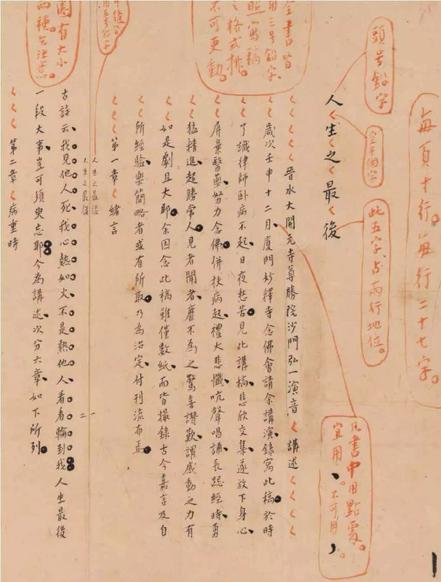 每頁十行。每行二十七字。
頭号鉛字
此五字、占兩行地位。
人生之最後
晉水大開元寺尊勝院沙門弘一演音 講述
凡書中用點處。
宜用、。不可用
全書皆
用三号鉛字
照寫稿
之格式排。
不可更動
歲次壬申十二月廈門妙釋寺念佛會請余講演錄寫此稿於時
了識律師臥病不起日夜愁苦見此講稿悲欣交集遂放下身心
屏棄醫藥努力念佛併扶病起禮大悲懺吭聲唱誦長跽經時勇
猛精進超勝常人見者聞者靡不為之驚喜讚歎謂感動之力有
如是劇且大耶余因念此稿雖僅數紙而皆撮錄古今嘉言及自
所經驗樂簡略者或有所取乃為治定付刊流布焉
第一章 緒言
人生之最後
一
二
古詩云我見他人死我心熱如火不是熱他人看看輪到我人生最後
一段大事豈可須臾忘耶今為講述次分六章如下所列
第二章 病重時
圈有大小
兩種、乞注意